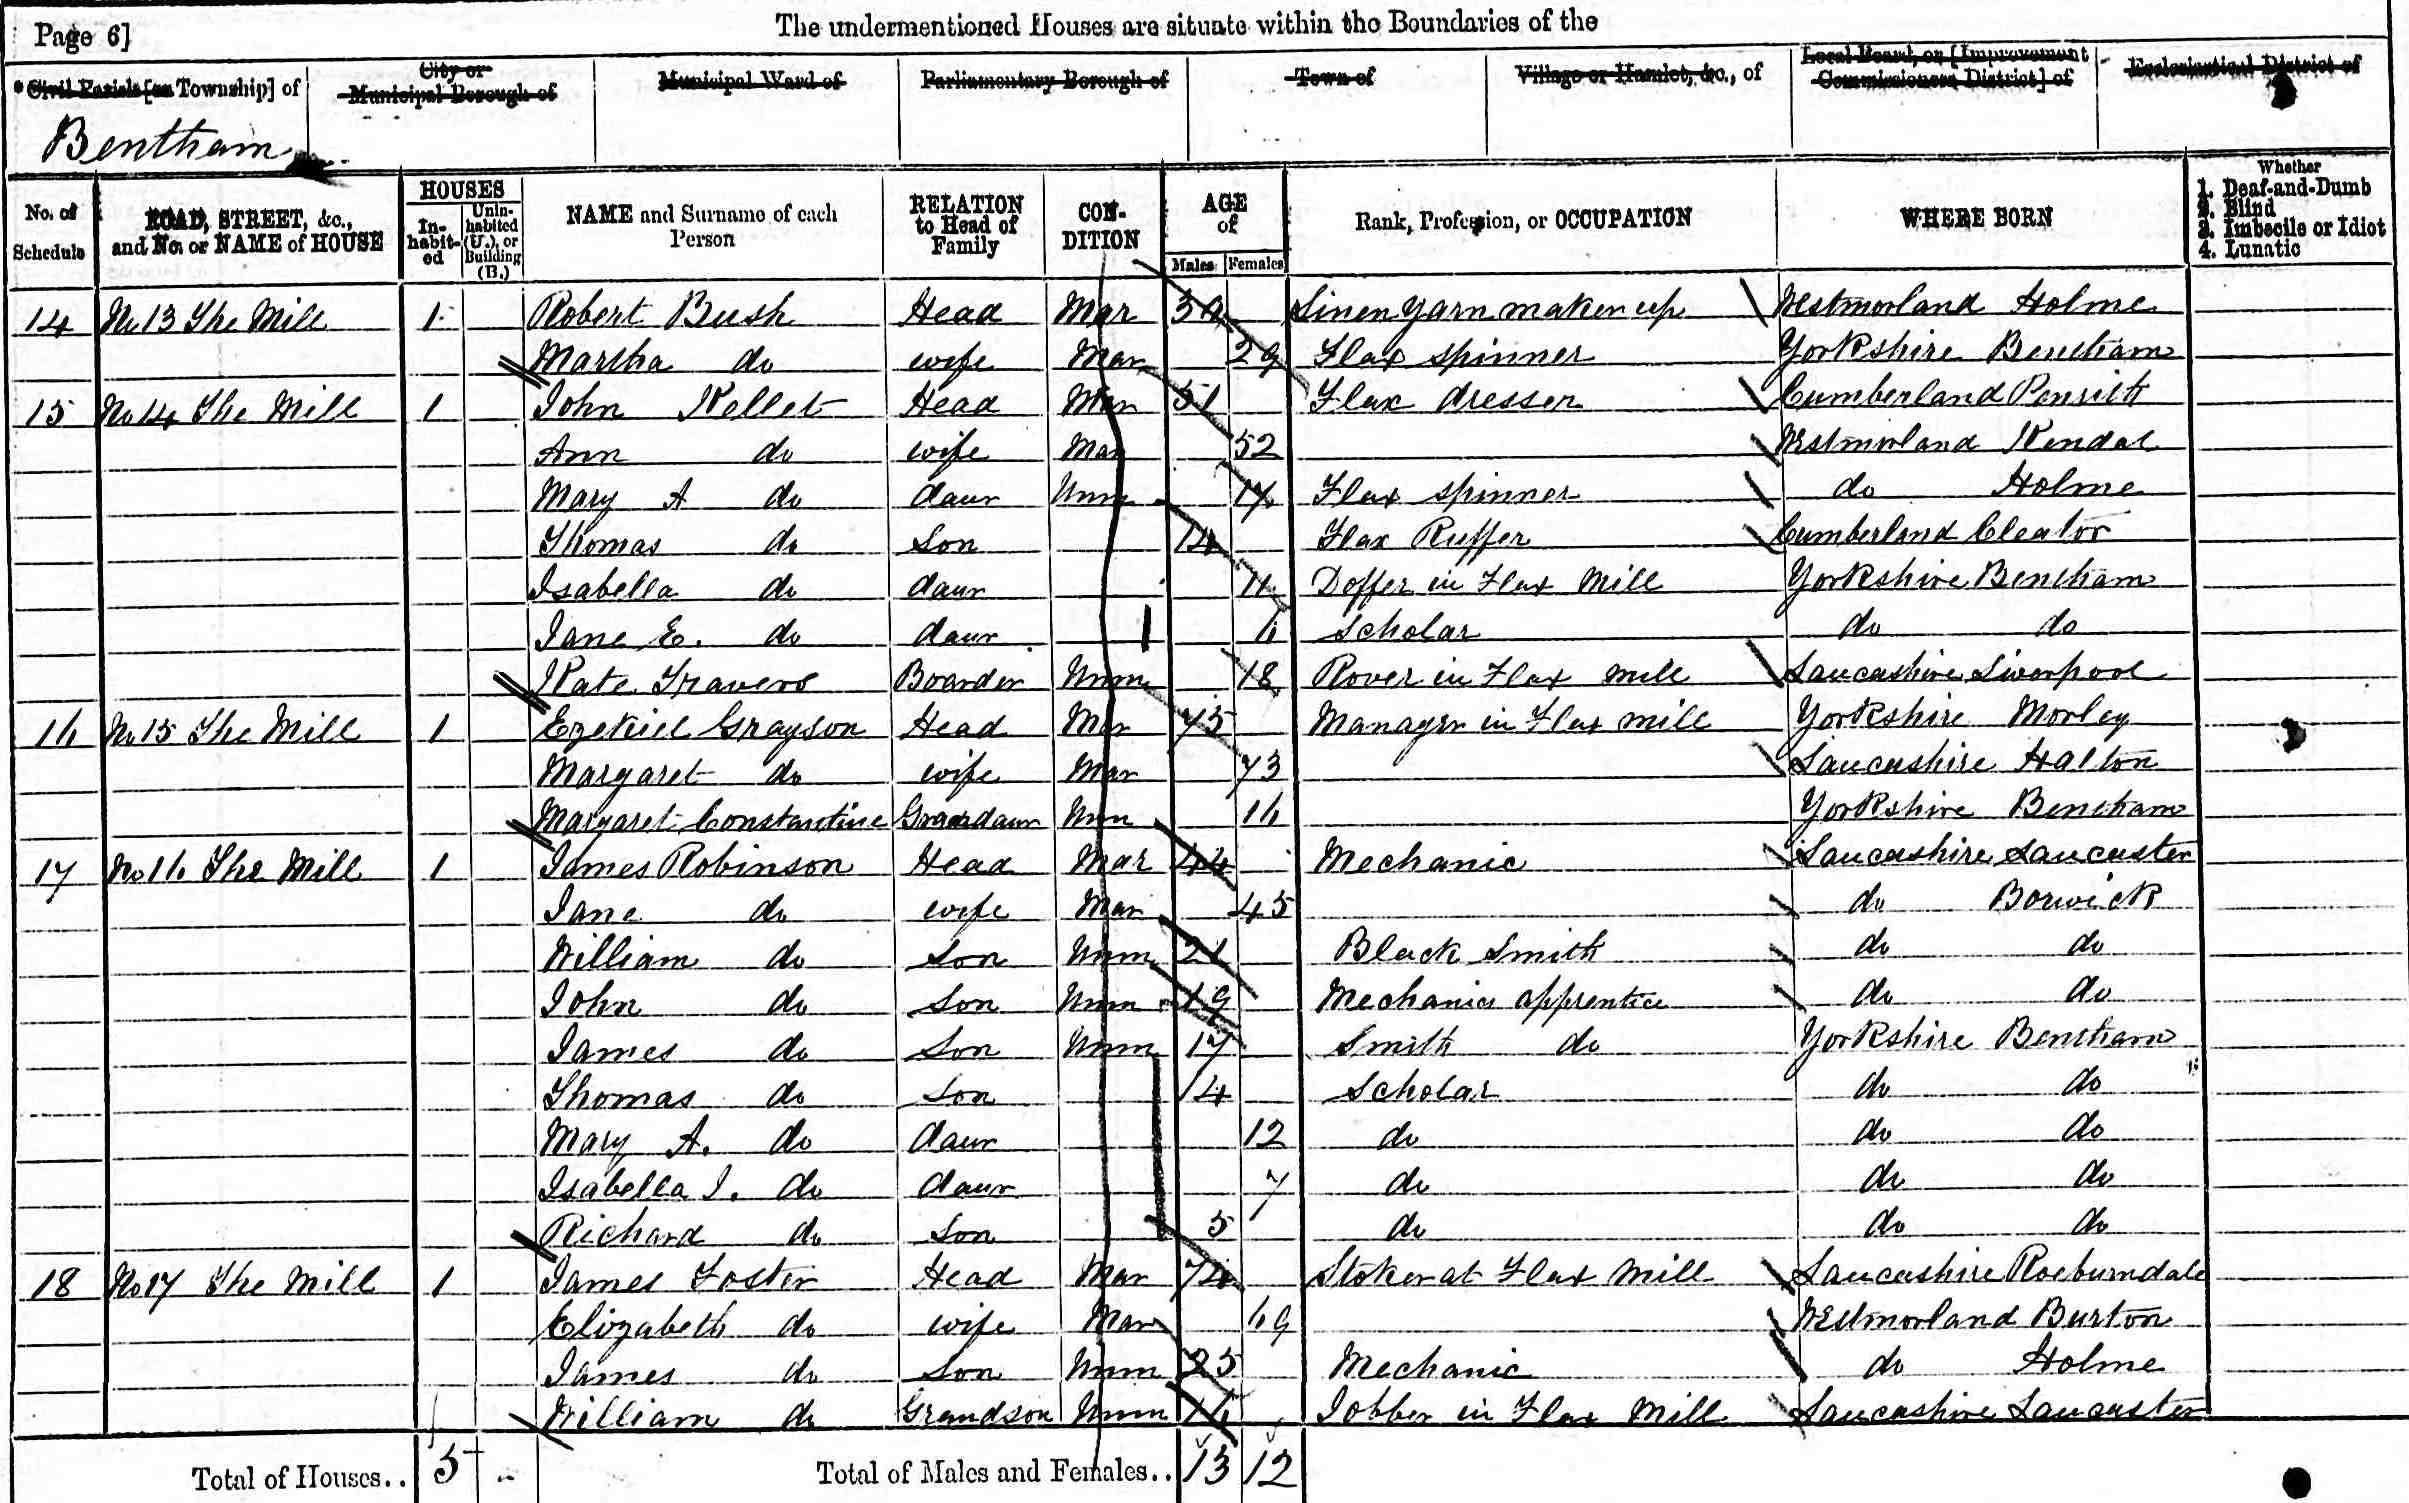 Page 6] The undermentioned Houses are situate within the Boundaries of the
* Civil Parish [or Township] of City or Municipal Borough of Municipal Ward of Parliamentary Borough of Town of Village or Hamlet, &c., of Local Board, or [Improvement Commissioners District] of Ecclesiastical District of
Bentham
No. of Schedule ROAD, STREET, &c., and No. or NAME of HOUSE HOUSES In-habit-ed Unin-habited (U.), or Building (B.) NAME and Surname of each Person RELATION to Head of Family CON-DITION AGE of Males Females Rank, Profession, or OCCUPATION WHERE BORN Whether 1. Deaf-and-Dumb 2. Blind 3. Imbecile or Idiot 4. Lunatic
14 No 13 The Mill 1 Robert Bush Head Mar 39 Linen yarn maker up Westmorland Holme
Martha do wife Mar 29 Flax spinner Yorkshire Bentham
15 No 14 The Mill 1 John Kellet Head Mar 51 Flax dresser Cumberland Penrith
Ann do wife Mar 52 Westmorland Kendal
Mary A do daur Unm 17 Flax spinner do Holme
Thomas do Son 14 Flax Ruffer Cumberland Cleator
Isabella do daur 11 Doffer in Flax Mill Yorkshire Bentham
Jane E. do daur 6 Scholar do do
Kate Travers Boarder Unm 18 Rover in Flax mill Lancashire Liverpool
16 No 15 The Mill 1 Ezekiel Grayson Head Mar 75 Manager in Flax mill Yorkshire Morley
Margaret do wife Mar 73 Lancashire Halton
Margaret Constantine Grandaur Unm 16 Yorkshire Bentham
17 No 16 The Mill 1 James Robinson Head Mar 44 Mechanic Lancashire Lancaster
Jane do wife Mar 45 do Borwick
William do Son Unm 21 Black Smith do do
John do Son Unm 19 Mechanics apprentice do do
James do Son Unm 17 Smith do Yorkshire Bentham
Thomas do Son 14 Scholar do do
Mary A. do daur 12 do do do
Isabella J. do daur 7 do do do
Richard do Son 5 do do do
18 No 17 The Mill 1 James Foster Head Mar 74 Stoker at Flax Mill Lancashire Roeburndale
Elizabeth do wife Mar 69 Westmorland Burton
James do Son Unm 25 Mechanic do Holme
William do Grandson Unm 16 Jobber in Flax Mill Lancashire Lancaster
Total of Houses.. 5 Total of Males and Females.. 13 12